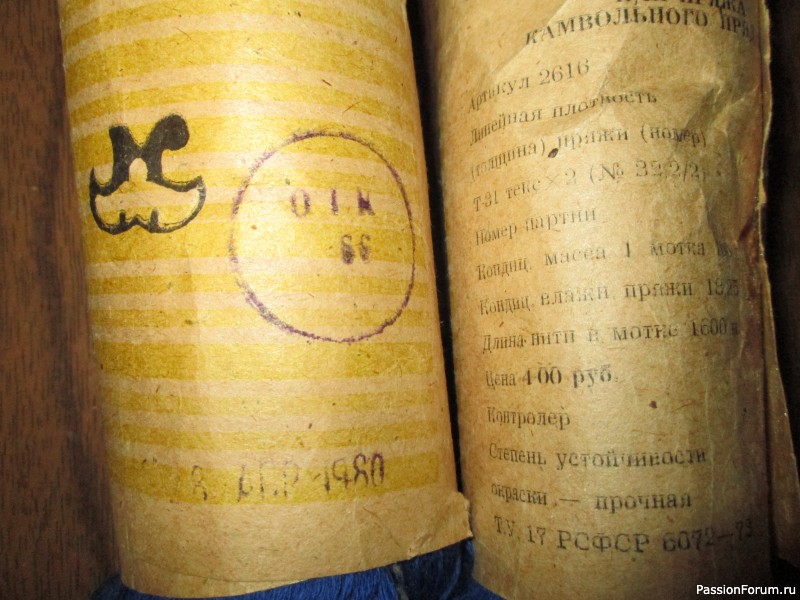 ОТК
66
АПР 1980
КАМВОЛЬНОГО
Артикул 2616
Линейная плотность
(толщина) пряжи (номер)
Т-31 текс × 2 (№ 32/2)
Номер партии
Кондиц. масса 1 мотка
Кондиц. влажн. пряжи
Длина нити в мотке 1600
Цена 4 00 руб.
Контролер
Степень устойчивости
окраски — прочная
Т.У. 17 РСФСР 6072—73
PassionForum.ru